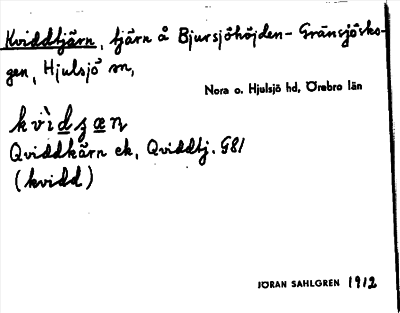 Kviddtjärn, tjärn å Bjursjöhöjden - Gränsjösko-
gen, Hjulsjö sn,
Nora o. Hjulsjö hd, Örebro län
kvìdʒæn
Qviddkärn ek, Qviddtj. G81
(kvidd)
JÖRAN SAHLGREN 1912